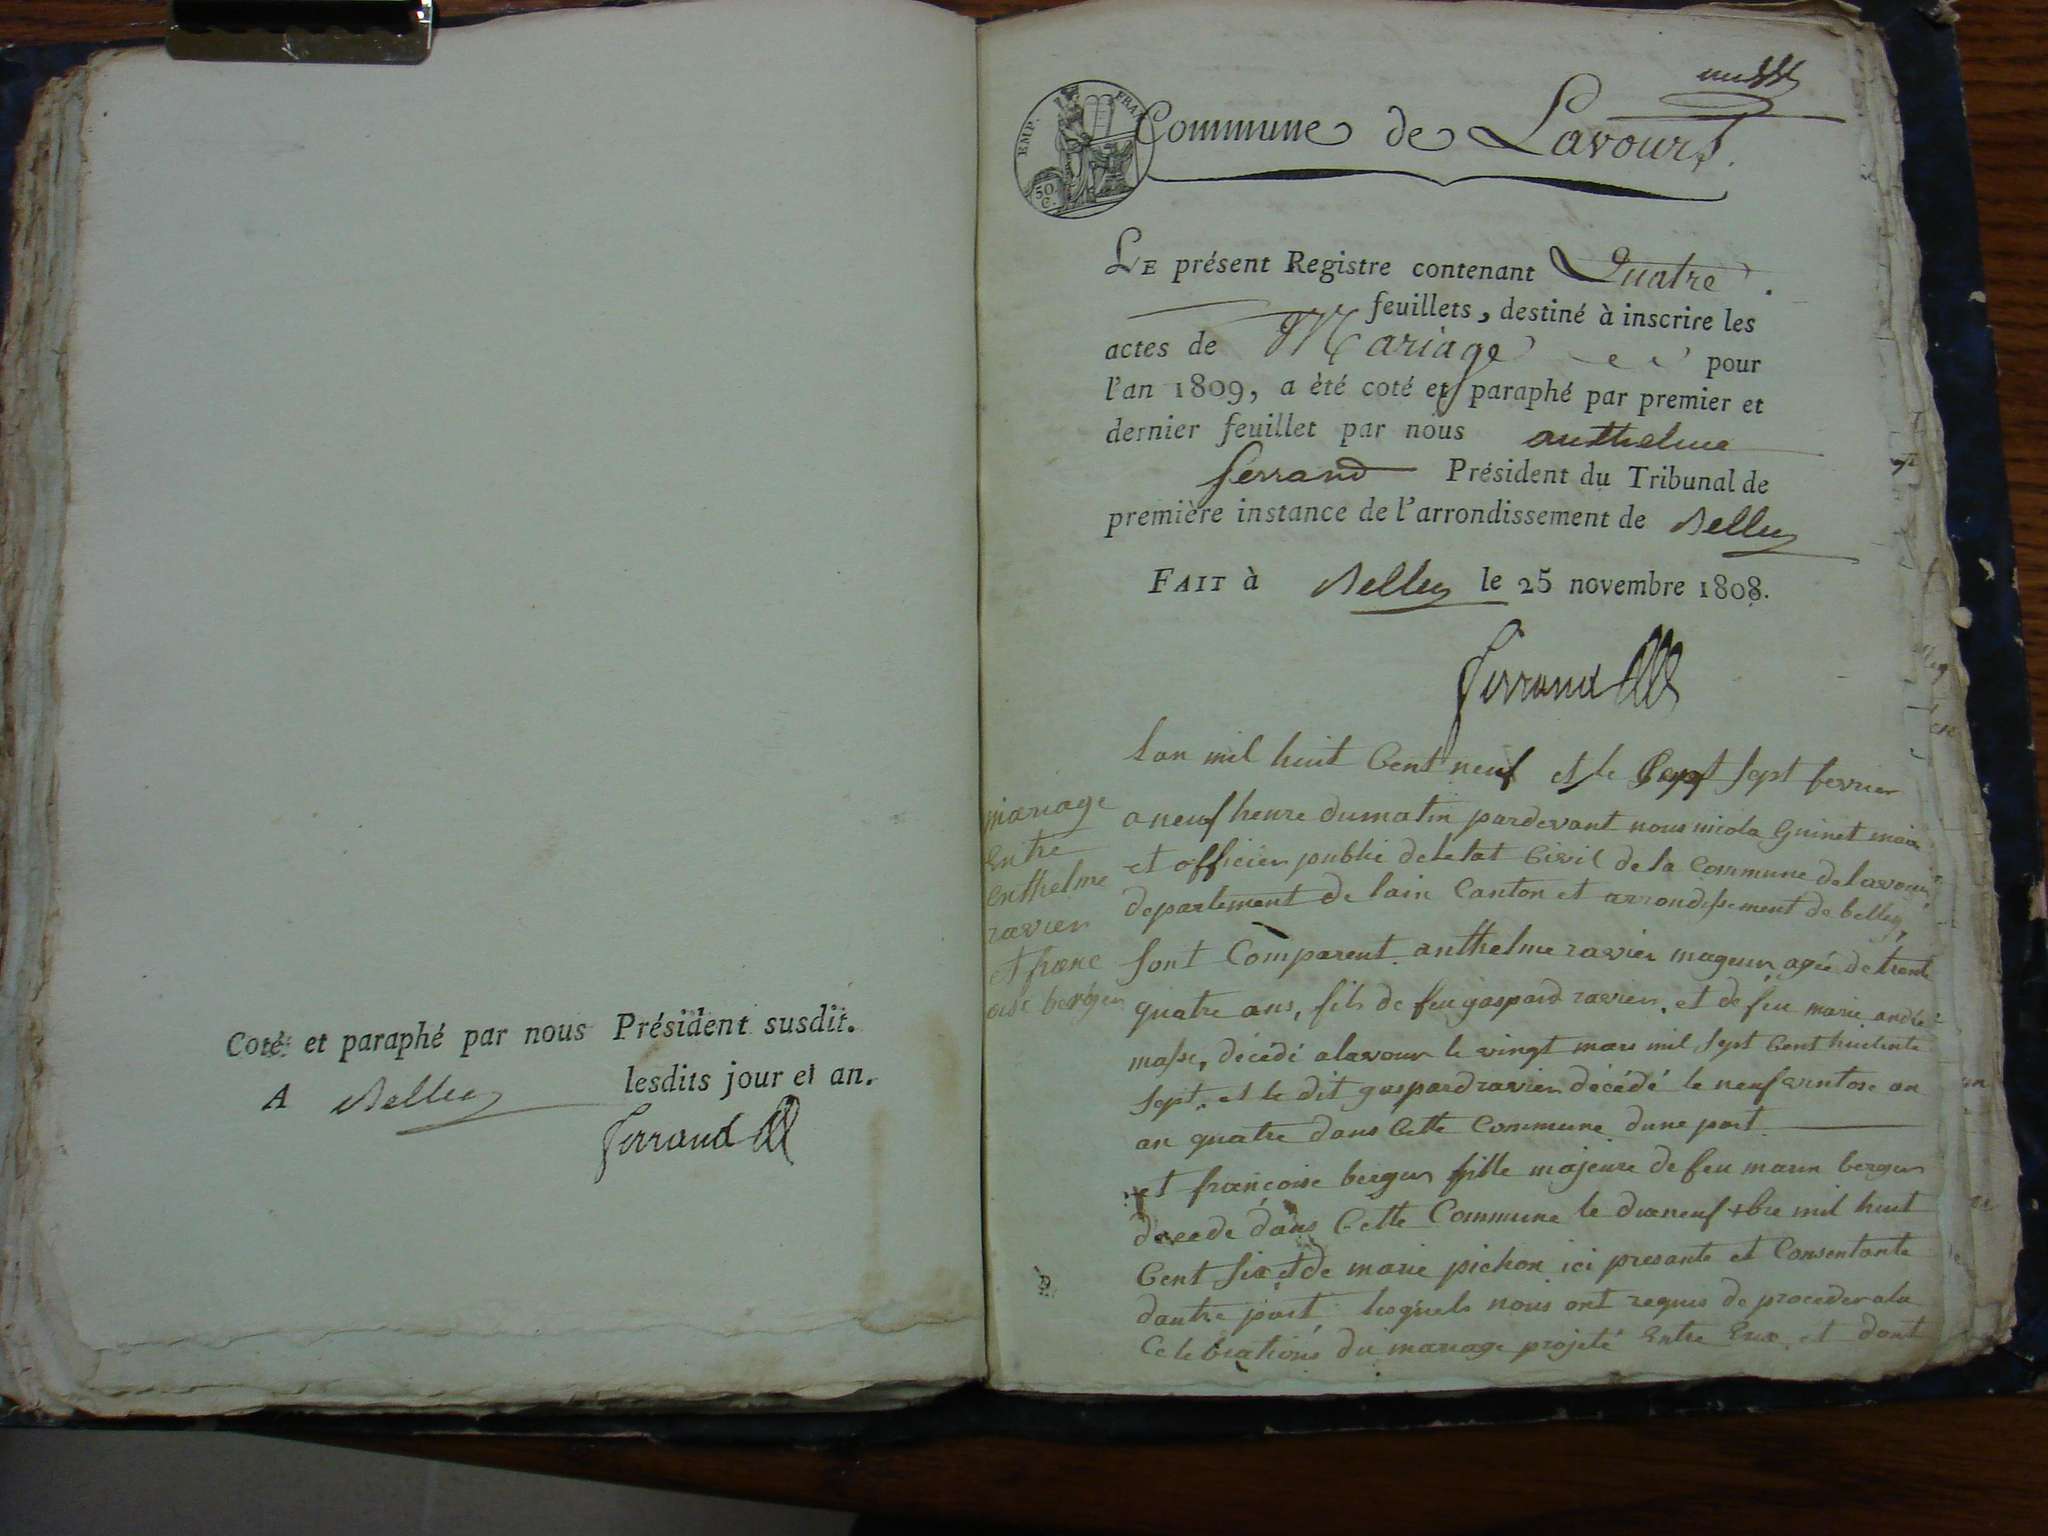 Coté et paraphé par nous Président susdit.
A Belley lesdits jour et an.
Ferrand
un
EMP. FRAN
50 C.
Commune de Lavours.
LE présent Registre contenant Quatre
feuillets, destiné à inscrire les
actes de Mariage pour
l'an 1809, a èté coté et paraphé par premier et
dernier feuillet par nous anthelme
ferrand Président du Tribunal de
première instance de l'arrondissement de Belley
FAIT à Belley le 25 novembre 1808.
Ferrand
mariage
Entre
Enthelme
ravier
et franc
oise berger
Lan mil huit Cent neuf et le Sept fevrier
a neuf heure dumatin pardevant nous nicola Guinet maire
et officier public deletat Civil de la Commune delavour
departement de lain Canton et arrondissement de belley,
sont Comparent anthelme ravier mageur, agée de trente
quatre ans, fils de feu gaspard ravier, et de feu marie andré
masse, décédé alavour le vingt mars mil sept Cent huitente
sept, et le dit gaspard ravier décédé le neuf ventose an
an quatre dans Cette Commune dune part
et françoise berger fille majeure de feu marin berger
decede dans Cette Commune le dixneuf bre mil huit
Cent six et de marie pichon ici presante et Consentante
dautre part, lesquels nous ont requis de proceder ala
Celebrations du mariage projeté Entre Eux et dont